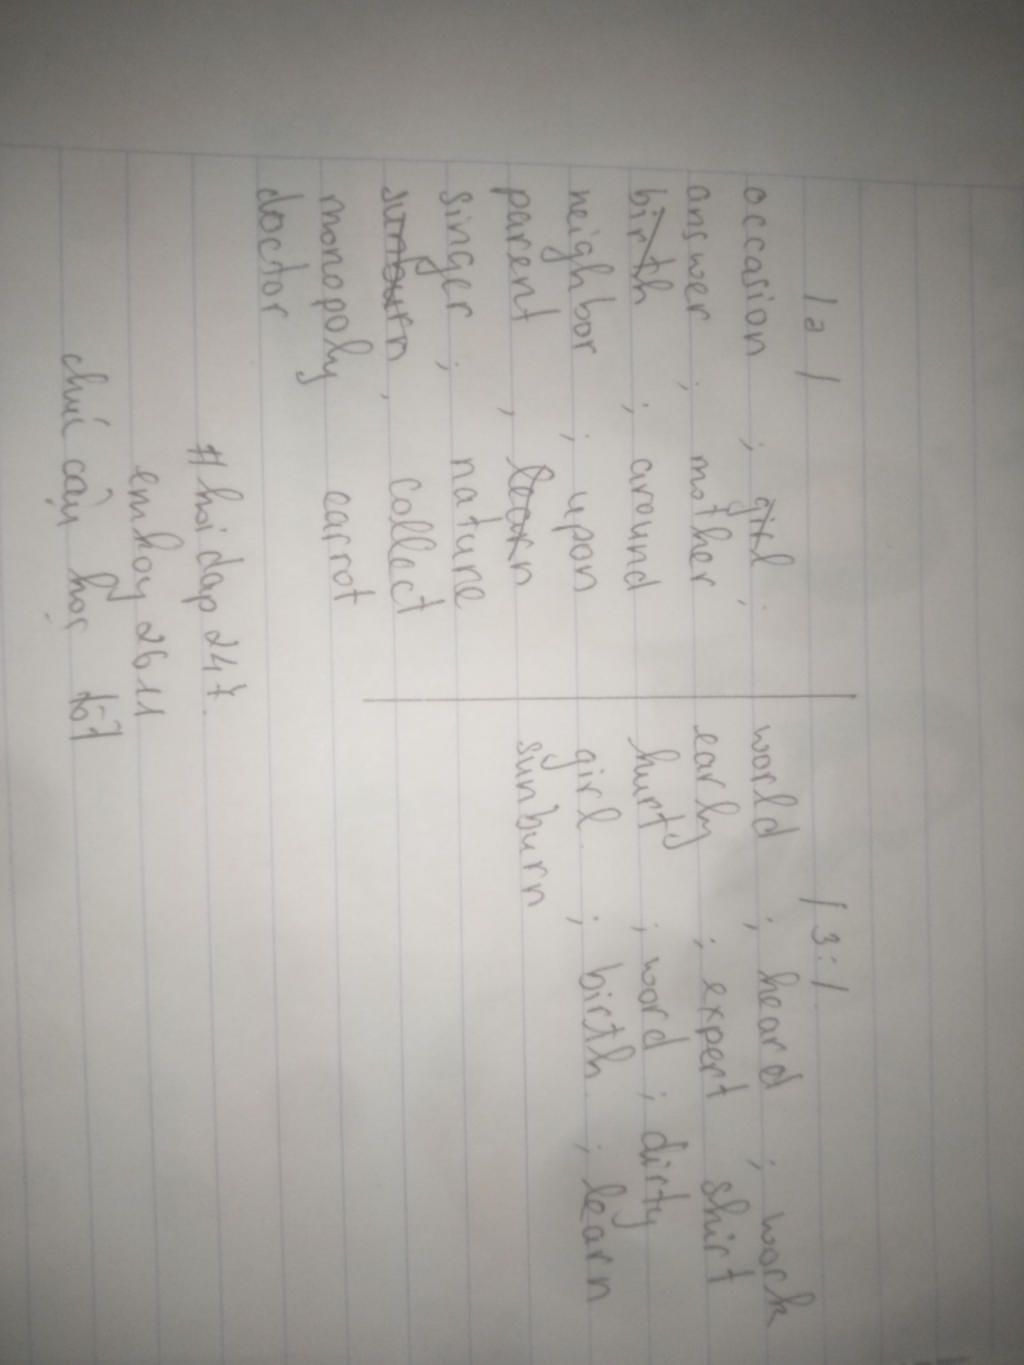 /ə/ /3:/
occasion ; girl ; world ; heard ; work
answer ; mother ; early ; expert shirt
birth ; around hurt ; word ; dirty
neighbor ; upon girl ; birth ; learn
parent , learn sunburn
singer ; nature
sunburn , collect
monopoly carrot
doctor
# hoidap247.
emkoy2611
chúc cậu học tốt